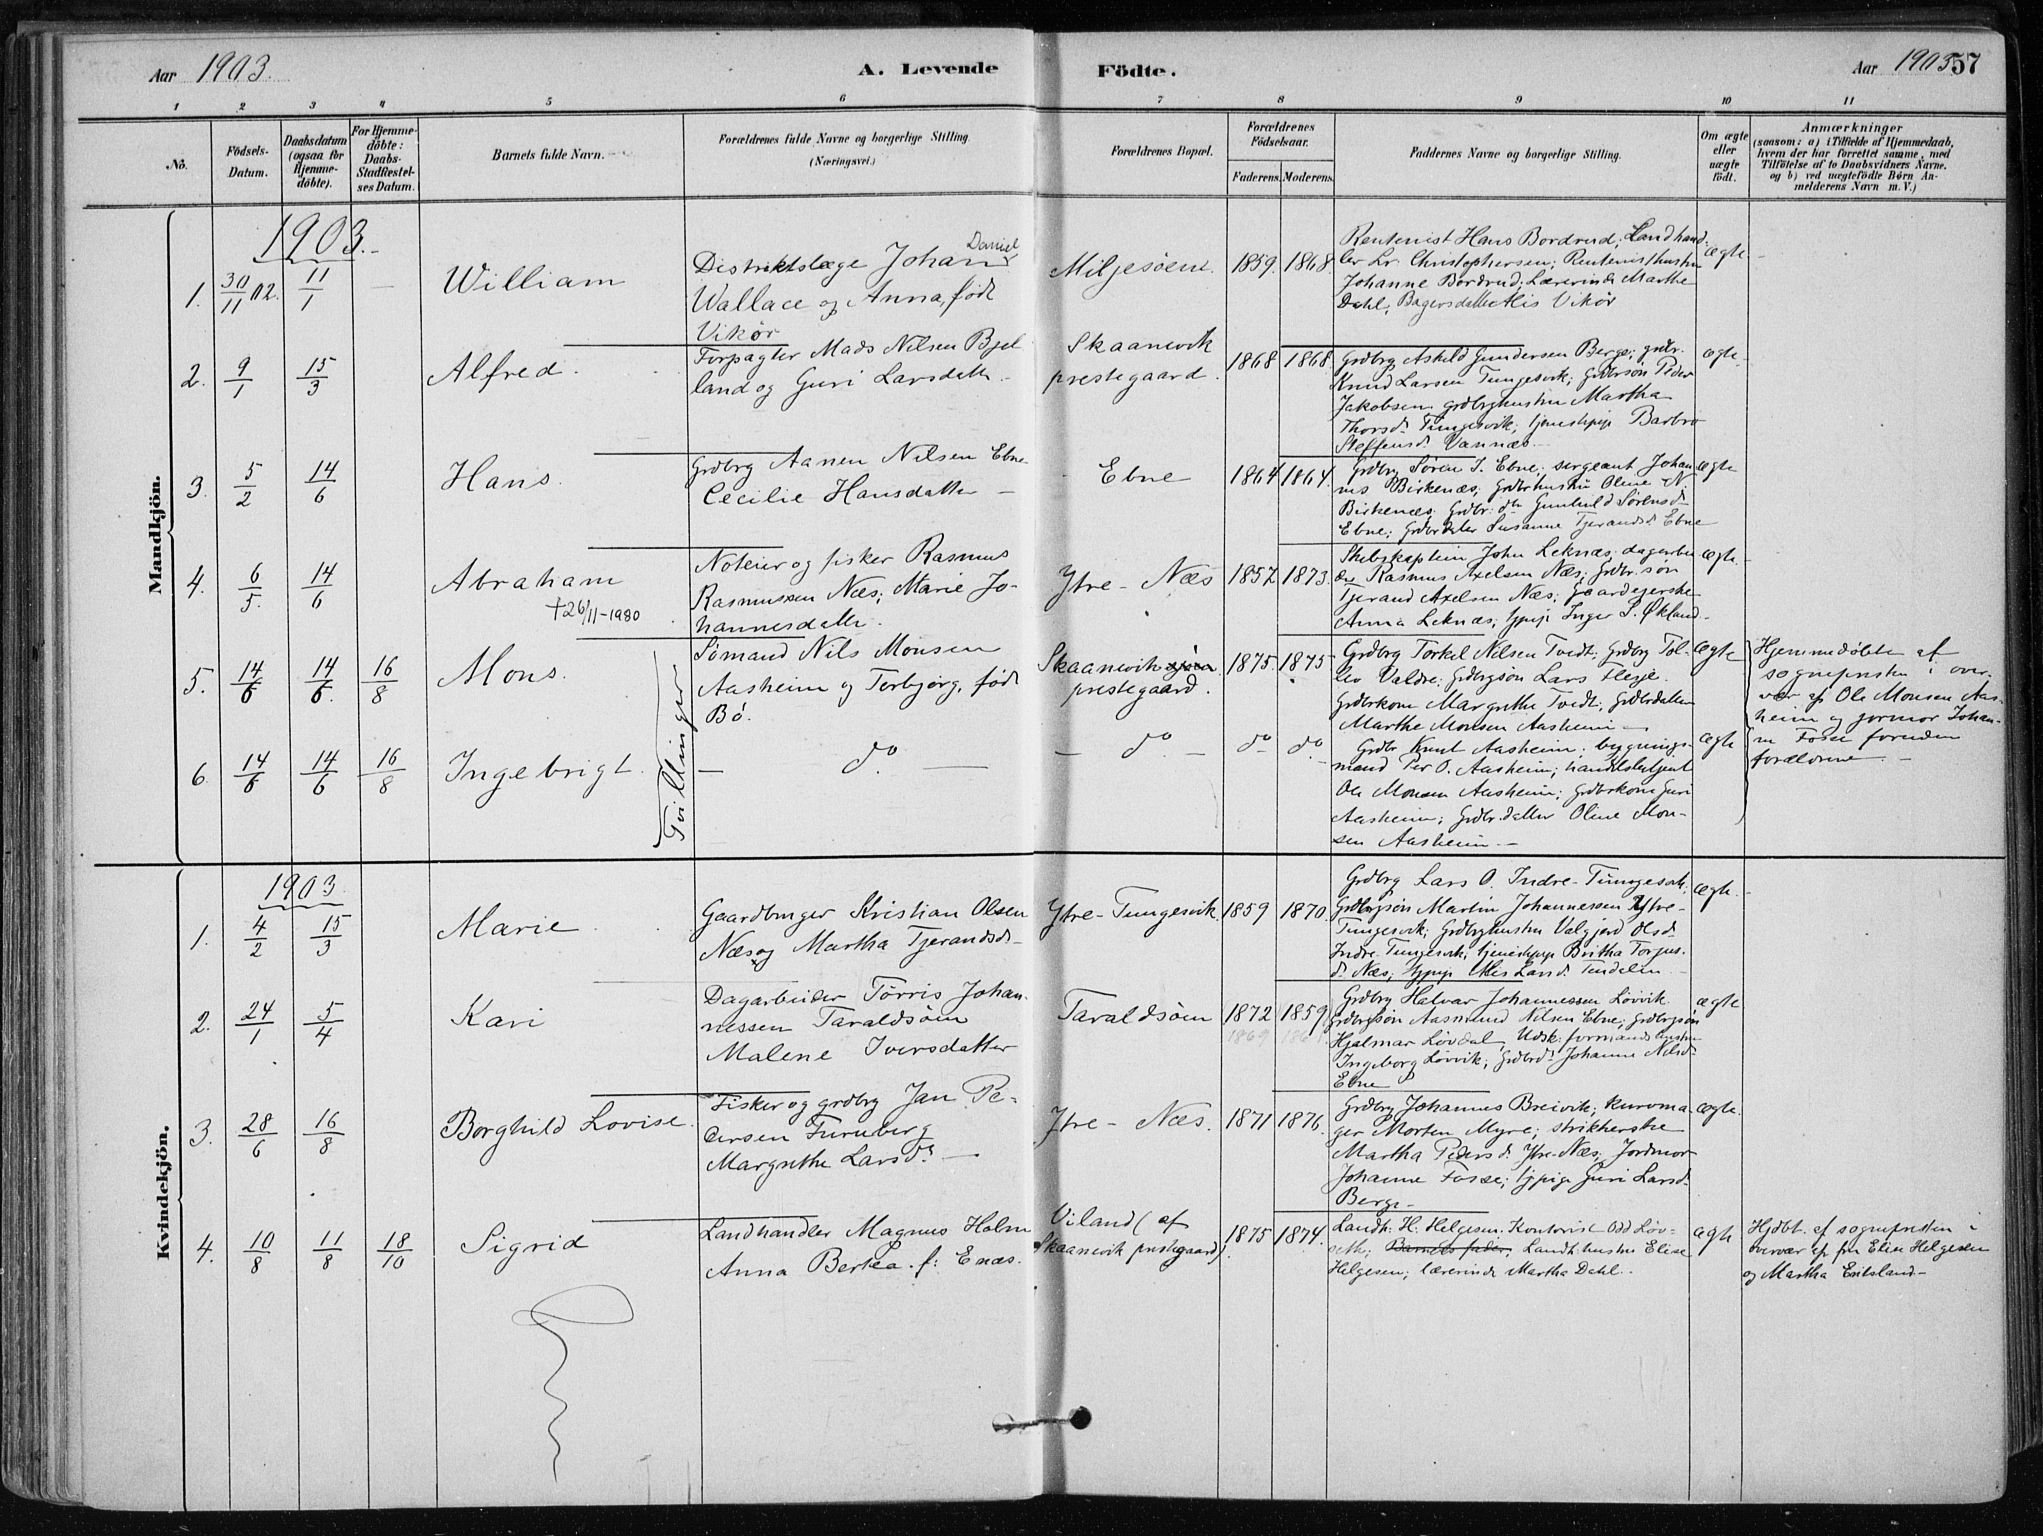 Aar 1903.
A. Levende
Födte.
Aar 1903
57
1 2 3 4 5 6 7 8 9 10 11
No.
Födsels-
Datum.
Daabsdatum
(ogsaa for
Hjemme-
döbte).
For Hjemme-
döbte:
Daabs-
Stadfæstel-
ses Datum.
Barnets fulde Navn.
Forældrenes fulde Navne og borgerlige Stilling.
(Næringsvei.)
Forældrenes Bopæl.
Forældrenes
Födselsaar.
Faderens. Moderens.
Faddernes Navne og borgerlige Stilling.
Om ægte
eller
uægte
födt.
Anmærkninger
(saasom: a) i Tilfælde af Hjemmedaab,
hvem der har forrettet samme, med
Tilföielse af to Daabsvidners Navne,
og b) ved uægtefödte Börn An-
melderens Navn m. V.)
Mandkjön.
1903.
1. 30/11 02. 11/1 — William
Distriktslæge Johan Daniel
Wallace og Anna, født
Vikør
Miljesøen. 1859. 1868
Rentenist Hans Bordrud; Landhand-
ler Lr. Christophersen; Rentenisthustru
Johanne Bordrud; Lærerinde Marthe
Dahl; Bagersdatter Alis Vikør
ægte
2. 9/1 15/3 Alfred.
Forpagter Mads Nilsen Bjel
land og Guri Larsdatter
Skaanevik
prestegaard. 1868 1868
Grdbrg Askild Gundersen Berge; grbr.
Knud Larsen Tungesvik; Grdbrsøn Peder
Jakobsen grdbrghustru Martha
Thorsd. Tungesvik; tjenestepige Barbro
Steffensd. Vannæs
ægte
3. 5/2 14/6 Hans.
Grdbrg Aanen Nilsen Ebne
Cecilie Hansdatter
Ebne 1864 1864.
Grdbrg Søren I. Ebne; sergeant Johan-
nes Birkenæs; Grdbrhustru Oline N.
Birkenæs; Grdbr. dtr Gunhild Sørensd.
Ebne; Grdbrdatter Susanne Tjerandsd. Ebne
ægte
4. 6/5. 14/6 Abraham
†26/11-1980
Noteier og fisker Rasmus
Rasmussen Næs; Marie Jo-
hannesdatter.
Ytre- Næs 1857 1873.
Skibskaptein John Leknæs; dagarbei
der Rasmus Axelsen Næs; Grdbr. søn
Tjerand Axelsen Næs; gaardejerske
Anna Leknæs; tjpige Inger S. Økland
ægte
5. 14/6 14/6. 16/8 Mons.
Tvillinger
Sømand Nils Monsen
Aasheim og Torbjørg, født
Bø.
Skaanevik
prestegaard. 1875. 1875
Grdbrg Torkel Nelsen Tvedt; Grdbrg Tol-
lev Valdre; Grdbrgsøn Lars Fleeje.
Grdbrkone Margrethe Tvedt; Grdbrdatter
Marthe Monsen Aasheim
ægte
Hjemmedøbte af
sognepresten i over-
vær af Ole Monsen Aas-
heim og jormor Johan-
ne Fosse foruden
forældrene.
6. 14/6 14/6 16/8 Ingebrigt
— do. —
— do — do do
Grdbr. Knut Aasheim; bygnings-
mand Per O. Aasheim; handelsbetjent
Ole Monsen Aasheim; Grdbrkone Guri
Aasheim; Grdbr.datter Oline Mon-
sen Aasheim.
ægte
Kvindekjön.
1903
1. 4/2 15/3 Marie
Gaardbruger Kristian Olsen
Næs og Martha Tjerandsd.
Ytre-Tungesvik 1859 1870.
Grdbrg Lars O. Indre-Tungesvik,
Grdbrgsøn Martin Johannessen Ytre-
Tungesvik; Grdbrghustru Valgjerd Olsd.
Indre-Tungesvik; tjenestepige Britha Torjus-
d. Næs; tjpige Larsd. Tendelen
ægte.
2. 24/1 5/4 Kari
Dagarbeider Tørris Johan-
nessen Taraldsøen
Malene Iversdatter
Taraldsøen 1872 1859
1869
Grdbrg Halvar Johannessen Løvvik
Grdbrgsøn Aasmund Nilsen Ebne; Grdbrgsøn
Hjalmar Løvdal, Udsk.formands hustru
Ingeborg Løvvik; Grdbrd. Johanne Nilsd.
Ebne
ægte
3. 28/6 16/8 Borghild Lovise.
Fisker og grdbrg Jan Pe-
dersen Furuberg
Margrethe Larsd.
Ytre- Næs. 1871 1876.
Grdbrg Johannes Breivik; kurvma-
ger Morten Myre; strikkerske
Martha Pedersd. Ytre-Næs; Jordmor
Johanne Fosse; tjpige Guri Larsd.
Berge
ægte.
4. 10/8 11/8 18/10 Sigrid
Landhandler Magnus Holm
Anna Bertea f: Enæs.
Viland (af
Skaanevik prestegaard). 1875 1874.
Landh. H. Helgesen; Kontorist Odd Løv-
seth; Barnets fader; Landh. hustru Elise
Helgesen; lærerinde Martha Dahl.
ægte
Hjdbt. af sognepresten i
overvær af fru Elise Helgesen
og Martha Eriksland